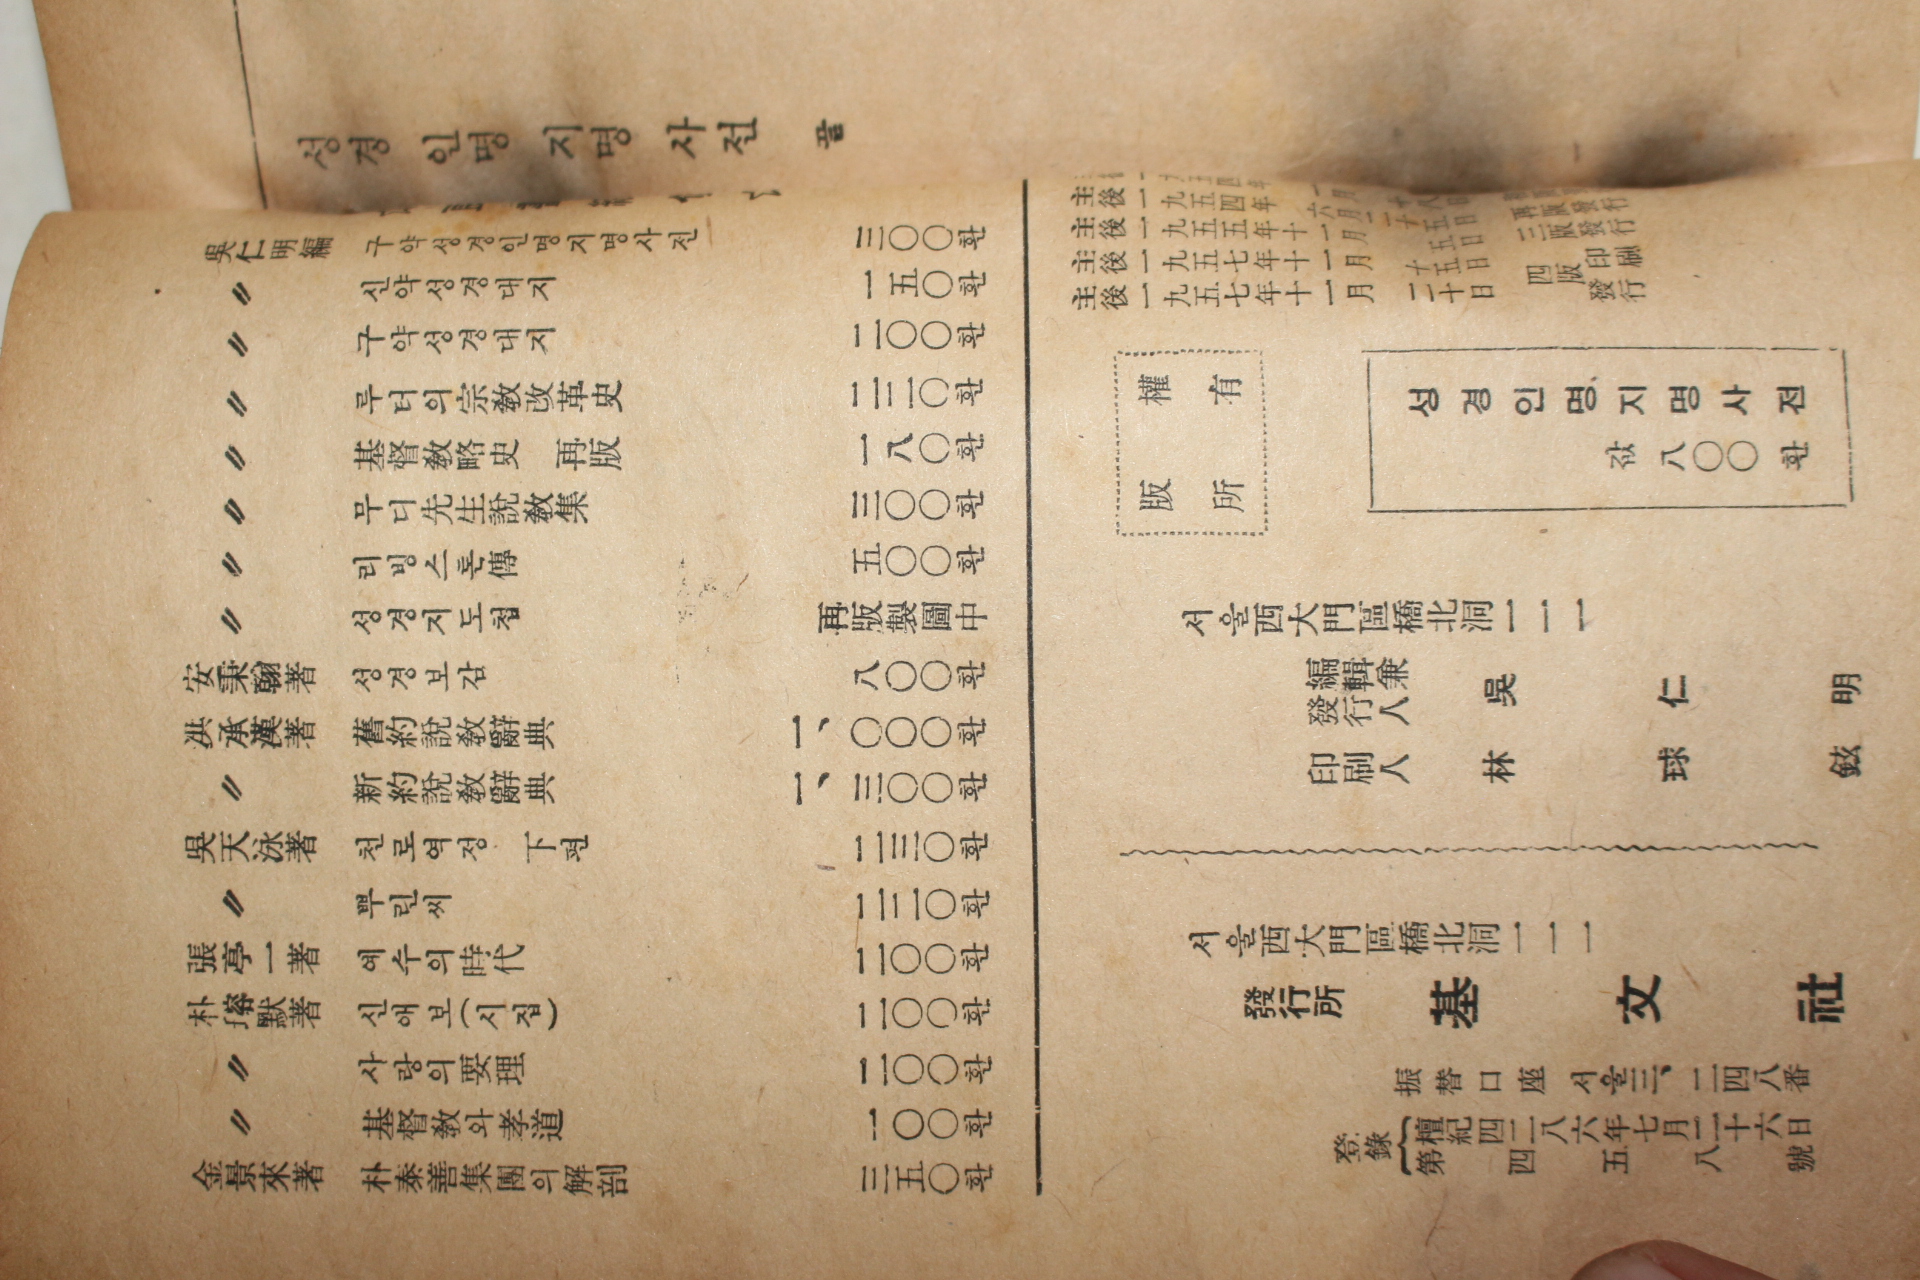 성경 인명 지명 사전 끝
吳仁明編 구약성경인명지명사전 三〇〇환
〃 신약성경대지 一五〇환
〃 구약성경대지 二〇〇환
〃 루터의宗敎改革史 二二〇환
〃 基督敎略史 再版 一八〇환
〃 무디先生說敎集 三〇〇환
〃 리빙스톤傳 五〇〇환
〃 성경지도첩 再版製圖中
安秉翰著 성경보감 八〇〇환
洪承漢著 舊約說敎辭典 一、〇〇〇환
〃 新約說敎辭典 一、三〇〇환
吳天泳著 천로역정 下편 二三〇환
〃 뿌린씨 二二〇환
張亭一著 예수의時代 二〇〇환
朴瑢默著 신애보(시집) 二〇〇환
〃 사랑의要理 二〇〇환
〃 基督敎와孝道 一〇〇환
金景來著 朴泰善集團의解剖 三五〇환
主後一九五四年 再版發行
主後一九五五年十一月十五日 三版發行
主後一九五七年十一月十五日 四版印刷
主後一九五七年十一月二十日 發行
權有
版所
성경인명、지명사전
값 八〇〇환
서울西大門區橋北洞一一一
編輯兼
發行人 吳仁明
印刷人 林球鉉
서울西大門區橋北洞一一一
發行所 基文社
振替口座 서울三、二四八番
登錄 檀紀四二八六年七月二十六日
第四五八號